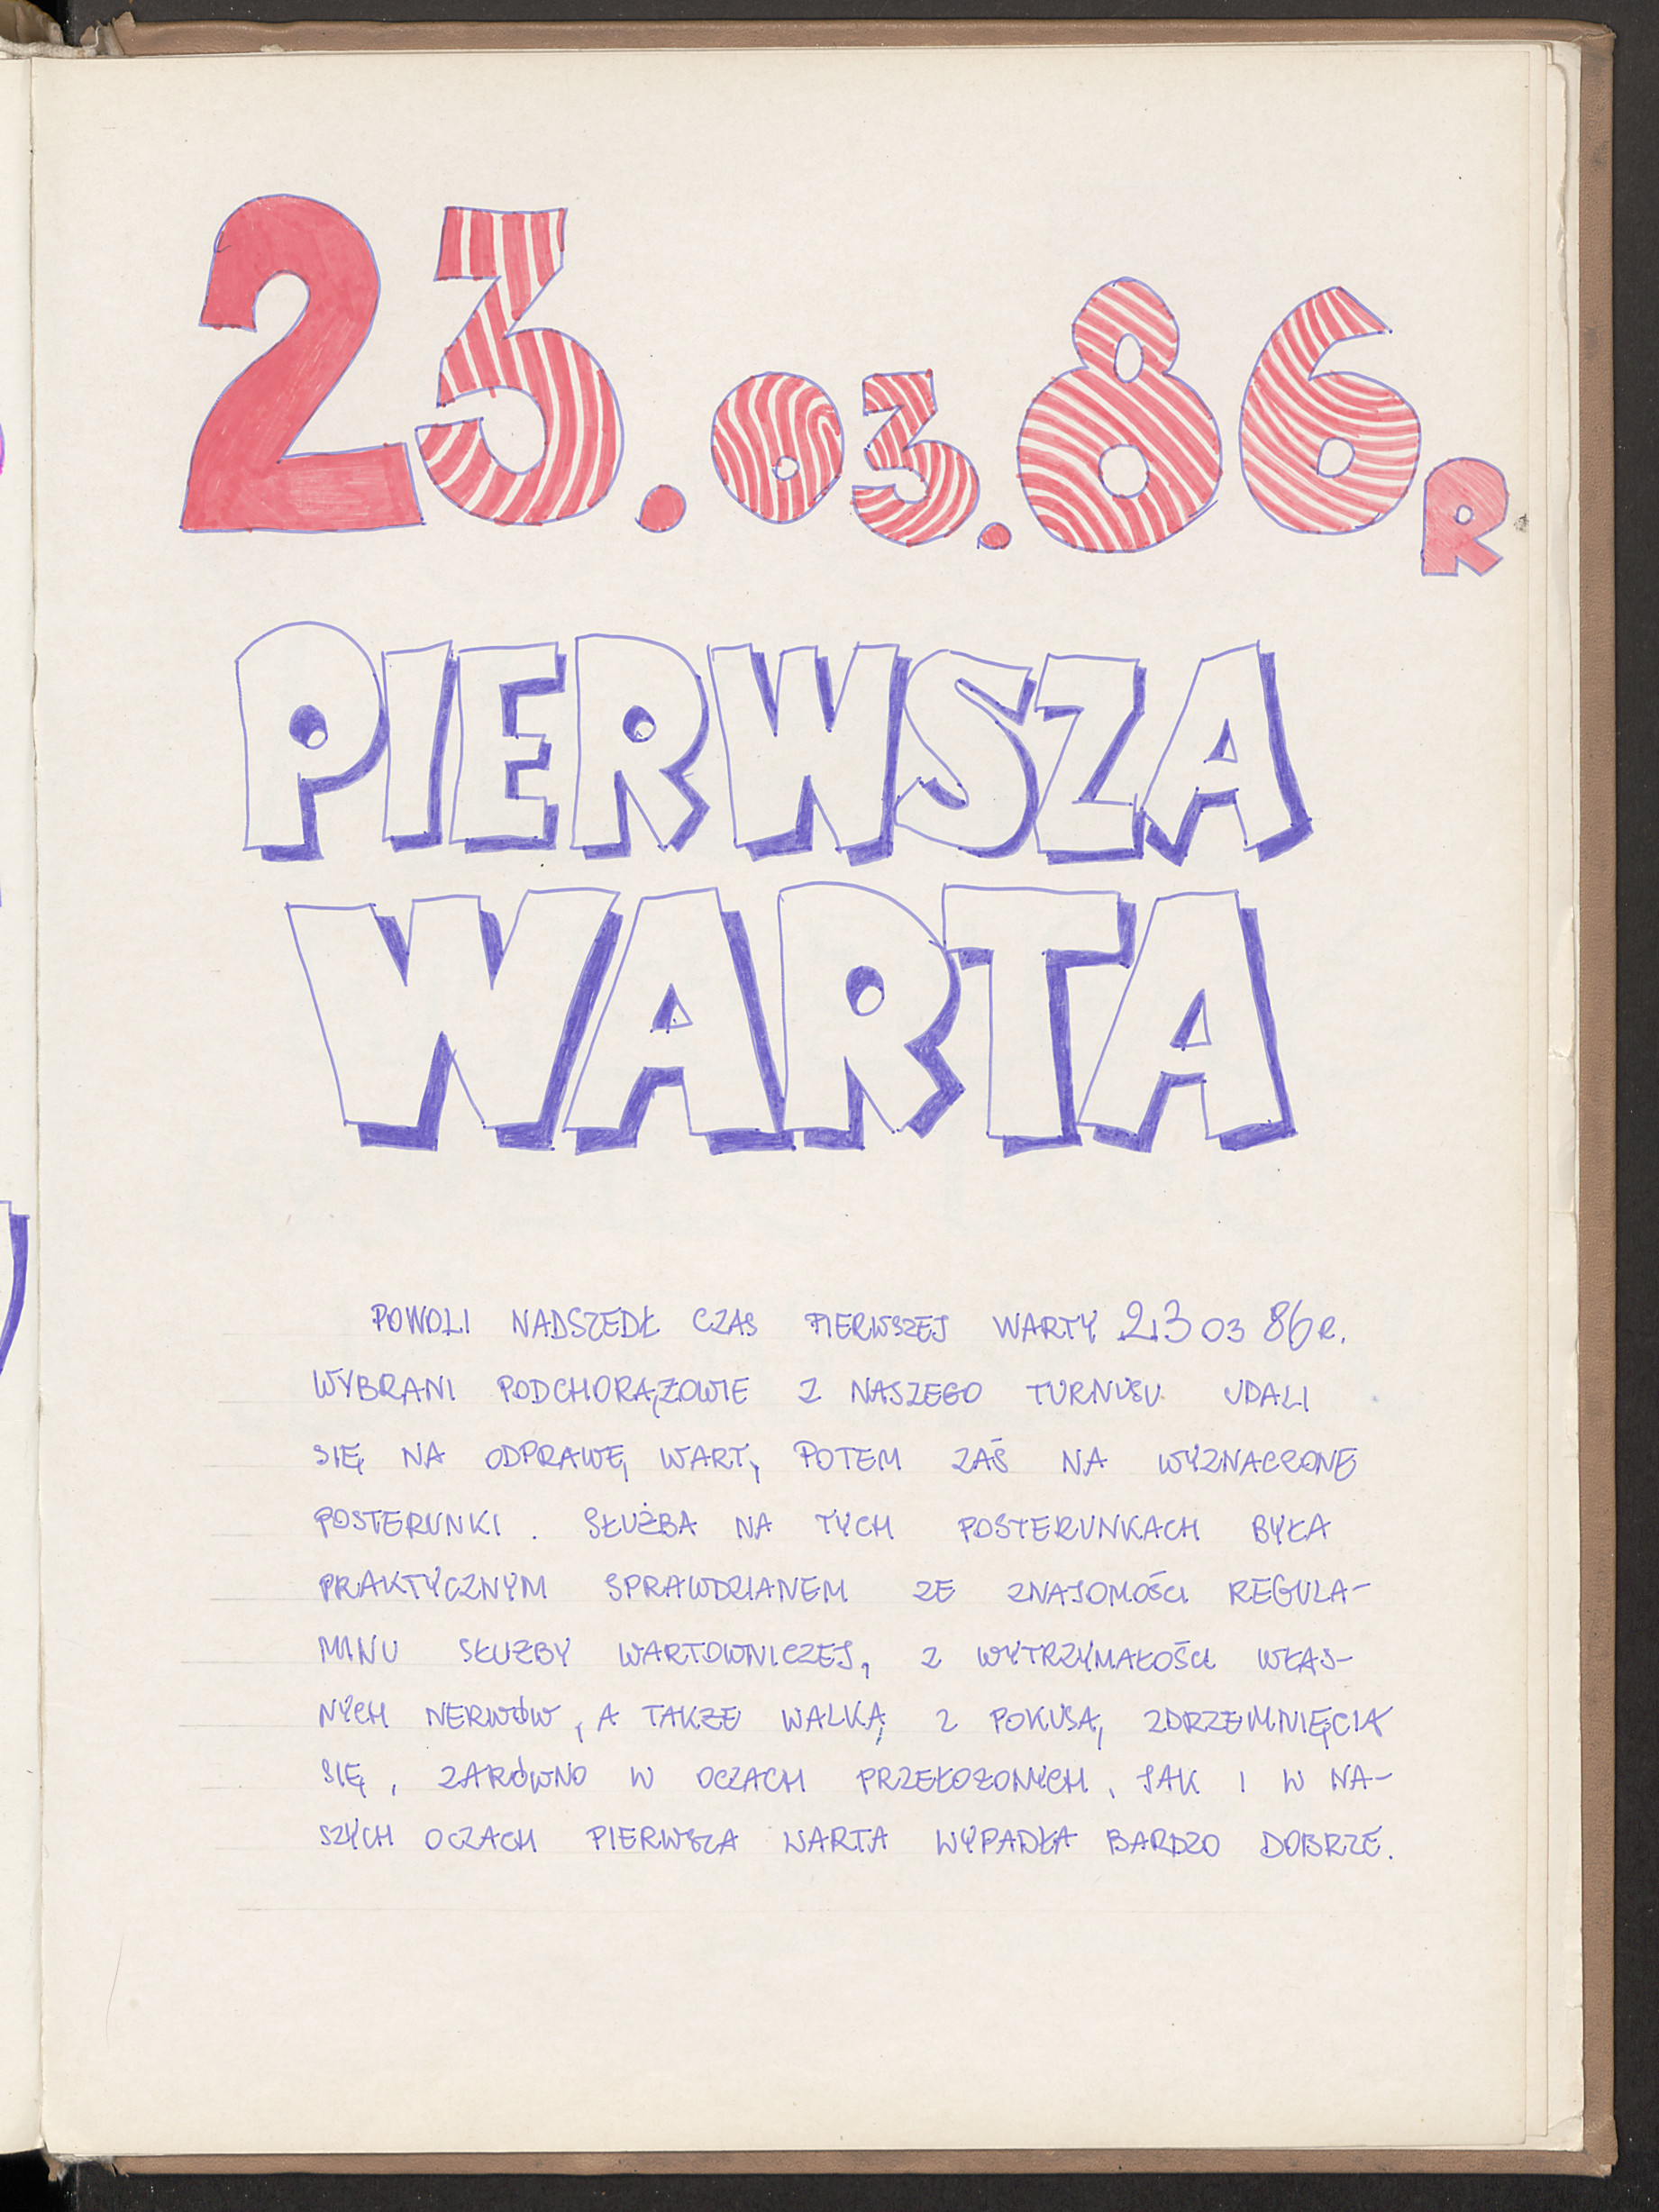 23.03.86R
PIERWSZA
WARTA
POWOLI NADSZEDŁ CZAS PIERWSZEJ WARTY 23 03 86 R.
WYBRANI PODCHORĄZOWIE Z NASZEGO TURNUSU UDALI
SIĘ NA ODPRAWĘ WART, POTEM ZAŚ NA WYZNACZONE
POSTERUNKI. SŁUŻBA NA TYCH POSTERUNKACH BYŁA
PRAKTYCZNYM SPRAWDZIANEM ZE ZNAJOMOŚCI REGULA-
MINU SŁUZBY WARTOWNICZEJ, Z WYTRZYMAŁOŚCI WŁAS-
NYCH NERWÓW, A TAKZE WALKĄ Z POKUSĄ ZDRZEMNIĘCIA
SIĘ, ZARÓWNO W OCZACH PRZEŁOZONYCH, JAK I W NA-
SZYCH OCZACH PIERWSZA WARTA WYPADŁA BARDZO DOBRZE.